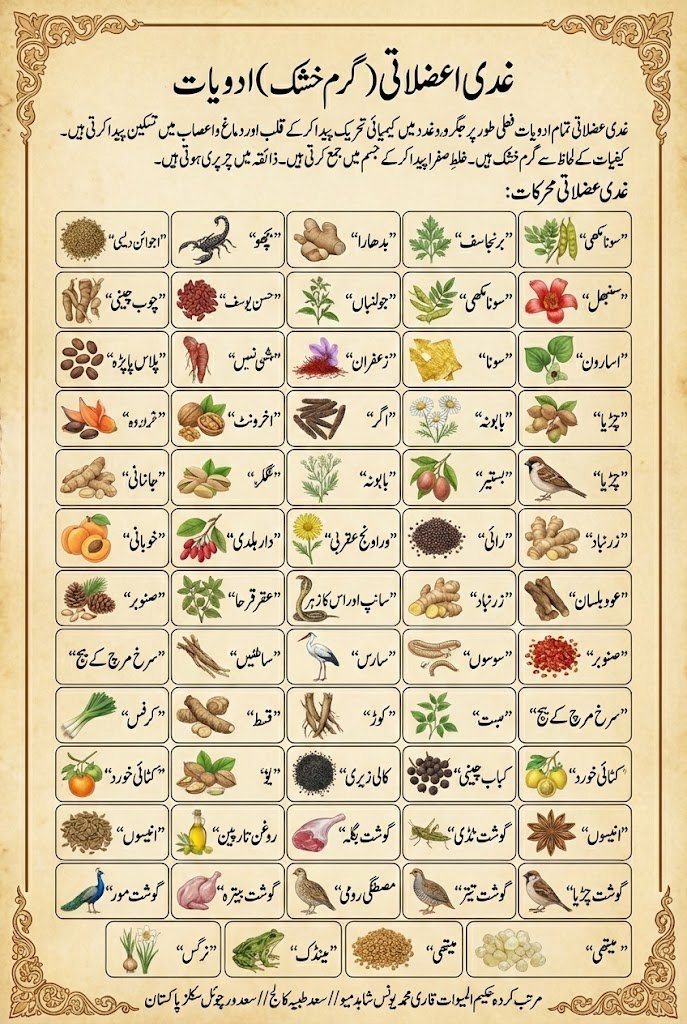 غدی اعضلاتی (گرم خشک) ادویات
غدی عضلاتی تمام ادویات فعلی طور پر جگر و غدد میں کیمیائی تحریک پیدا کر کے قلب اور دماغ و اعصاب میں تسکین پیدا کرتی ہیں۔
کیفیات کے لحاظ سے گرم خشک ہیں۔ غلیظ صفرا پیدا کر کے جسم میں جمع کرتی ہیں۔ ذائقہ میں چرپری ہوتی ہیں۔
غدی عضلاتی محرکات:
"سونا مکھی" "برنجاسف" "بدھارا" "بچھو" "اجوائن دیسی"
"سنبھل" "سونا مکھی" "جولنباں" "حسن یوسف" "چوب چینی"
"اسارون" "سونا" "زعفران" "پلاس پاپڑہ"
"چڑیا" "بابونہ" "اگر" "اخرونٹ"
"چڑیا" "بستیر" "بابونہ" "جانانی"
"زرنباد" "رائی" "وراونج عقربی" "دار ہلدی" "خوبانی"
"عود بلسان" "زرنباد" "سانپ اور اس کا زہر" "عقر قرحا" "صنوبر"
"صنوبر" "سوسوں" "سارس" "سرخ مرچ کے بیج"
"سرخ مرچ کے بیج" "کوڑ" "قسط" "کرفس"
"کٹائی خورد" کباب چینی" کالی زیری" "یو" "کٹائی خورد"
"انیسوں" گوشت ٹڈی" گوشت بگلہ" روغن تارپین" "انیسوں"
گوشت چڑیا" گوشت تیتر" مصطگی رومی" گوشت بیترہ" گوشت مور"
"میتھی" "میتھی" "مینڈک" "نرگس"
مرتب کردہ حکیم المیوات قاری محمد یونس شاہد میو // سعد طبیہ کالج // سعد ورچوئل سکلز پاکستان